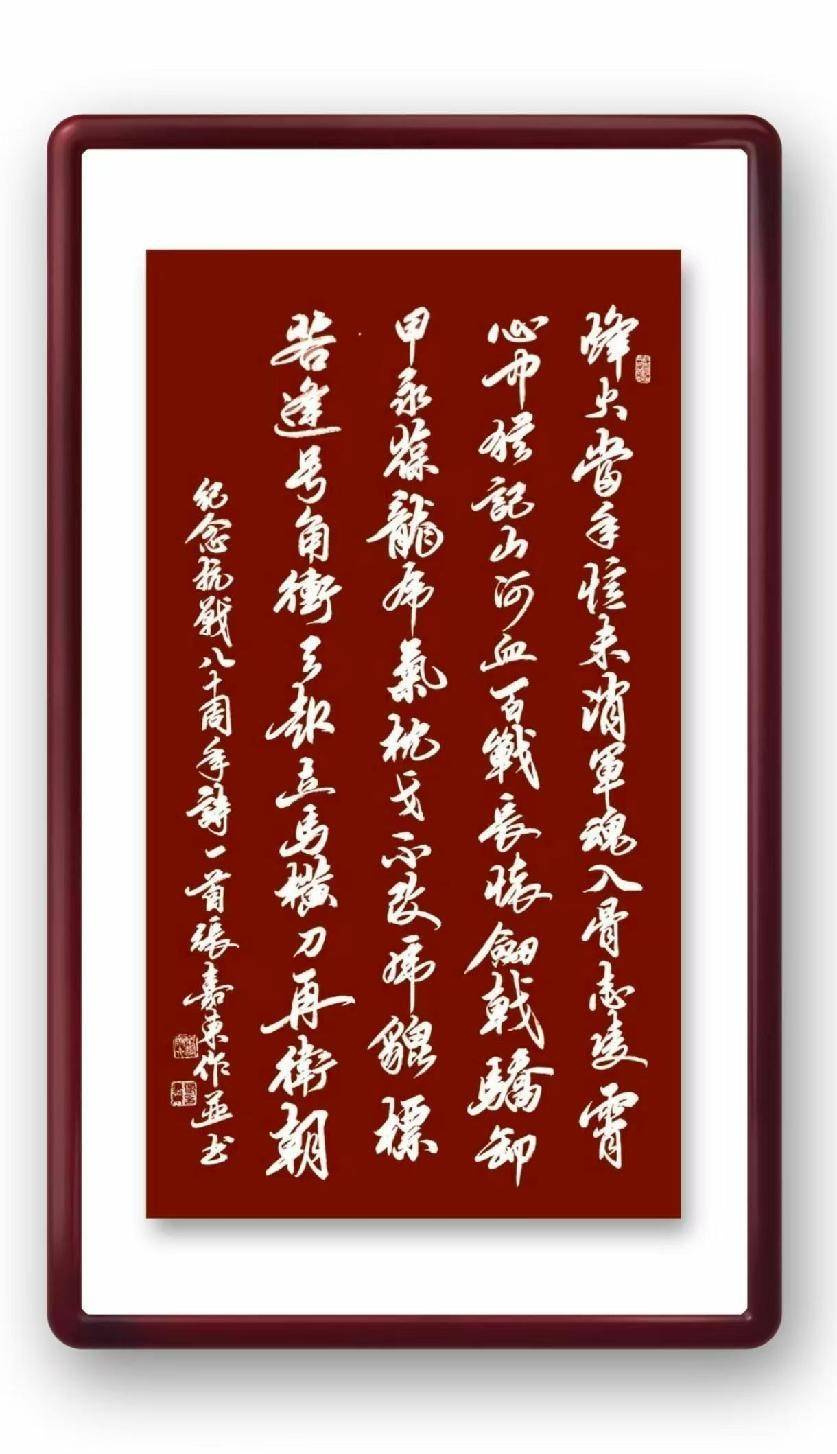 烽火當年憶未消軍魂入骨志凌霄
心中猶記山河血百戰長懷劍戟驕卸
甲永葆龍虎氣枕戈不改虎貔標
若逢号角衝云起立馬橫刀再衛朝
紀念抗戰八十周年詩一首張嘉東作並书